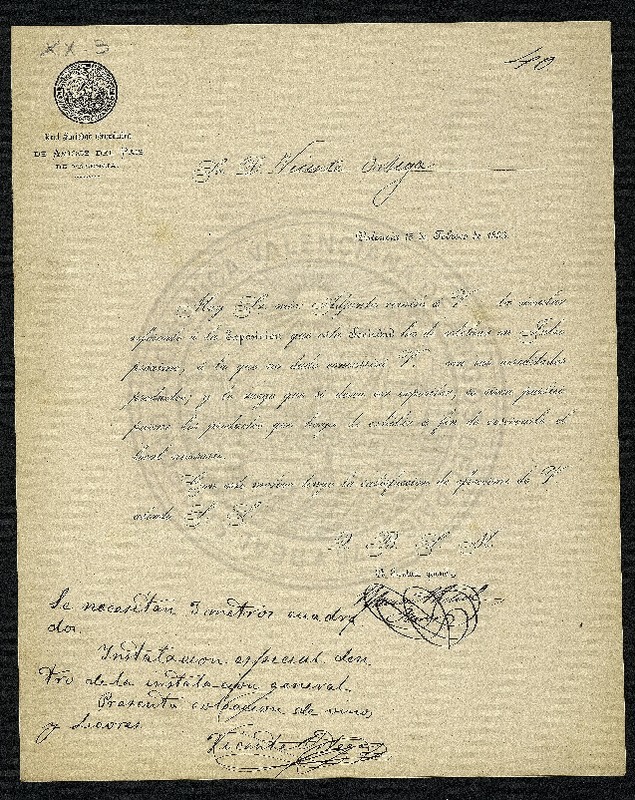 XX-3
40
Real Sociedad Económica
DE AMIGOS DEL PAIS
DE VALENCIA.
Sr. D. Vicente Ortega
Valencia 15 de Febrero de 1883
Muy Sr. mio: Adjunto remito á V. la
referente á la Exposicion que esta Sociedad ha de celebrar en Julio
próximo, á la que no dudo concurrirá V. con sus acreditados
productos; y le ruego que se sirva
fueren los productos que haya de exhibir á fin de reservarle el
local necesario.
Con este motivo tengo la satisfaccion de ofrecerme de V.
atento S. S.
Q. B. S. M.
El Secretario general,
Se necesitan 3 metros cuadra
dos.
Instalacion especial den
tro de la instalacion general.
Presenta coleccion de vinos
y licores
Vicente Ortega